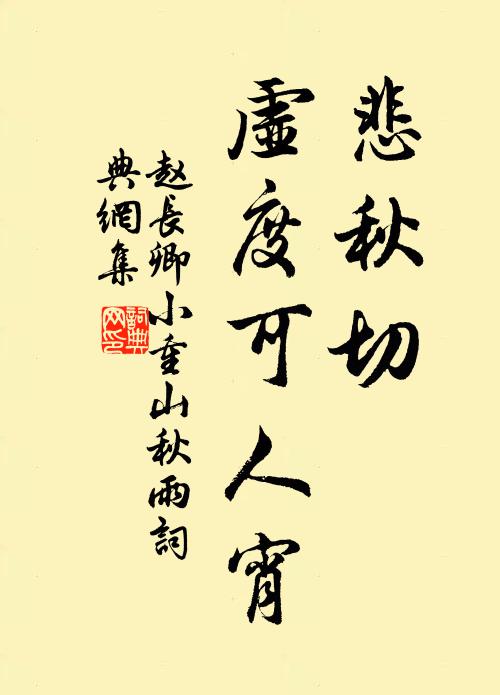 悲秋切
虚度可人宵
赵長卿小重山秋雨詞
典網集
詞典网印